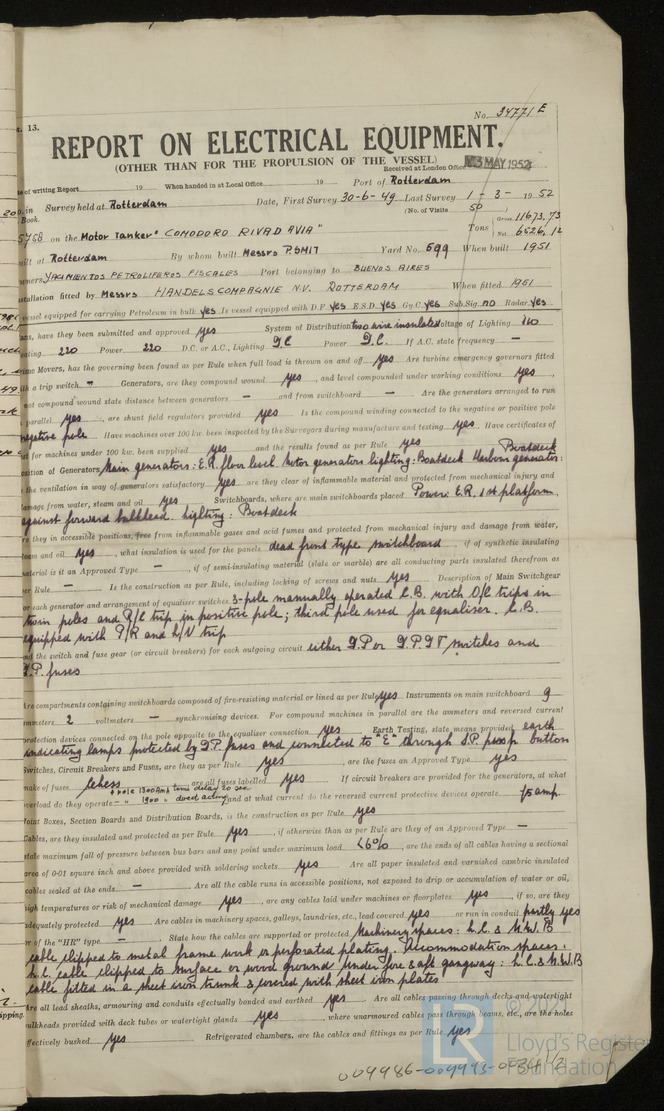 13.
No. 34771 E
REPORT ON ELECTRICAL EQUIPMENT.
(OTHER THAN FOR THE PROPULSION OF THE VESSEL)
Received at London Office 3 MAY 1952
of writing Report 19 When handed in at Local Office 19 Port of Rotterdam
in Survey held at Rotterdam Date, First Survey 30-6-49 Last Survey 1-3-1952
Book.
(No. of Visits 50
5758 on the Motor Tanker "COMODORO RIVADAVIA" Tons Gross 11673,73
Net 6526,12
at Rotterdam By whom built Messrs P. SMIT Yard No. 599 When built 1951
YACIMIENTOS PETROLIFEROS FISCALES Port belonging to BUENOS AIRES
installation fitted by Messrs HANDELSCOMPAGNIE N.V. ROTTERDAM When fitted 1951
vessel equipped for carrying Petroleum in bulk yes Is vessel equipped with D.F. yes E.S.D. yes Gy.C. yes Sub.Sig. no Radar yes
have they been submitted and approved yes System of Distribution two wire insulated Voltage of Lighting 110
220 Power 220 D.C. or A.C., Lighting D.C. Power D.C. If A.C. state frequency —
Movers, has the governing been found as per Rule when full load is thrown on and off yes Are turbine emergency governors fitted
with a trip switch — Generators, are they compound wound yes, and level compounded under working conditions yes,
not compound wound state distance between generators — and from switchboard — Are the generators arranged to run
parallel yes, are shunt field regulators provided yes Is the compound winding connected to the negative or positive pole
negative pole Have machines over 100 kw. been inspected by the Surveyors during manufacture and testing yes. Have certificates of
for machines under 100 kw. been supplied yes and the results found as per Rule yes
Position of Generators Main generators: E.R. floor level. Motor generators lighting: Boatdeck Harbour generator: Boatdeck
the ventilation in way of generators satisfactory yes are they clear of inflammable material and protected from mechanical injury and
damage from water, steam and oil yes Switchboards, where are main switchboards placed Power: E.R. 1st platform,
against forward bulkhead. Lighting: Boatdeck
are they in accessible positions, free from inflammable gases and acid fumes and protected from mechanical injury and damage from water,
steam and oil yes, what insulation is used for the panels dead front type switchboard if of synthetic insulating
material is it an Approved Type —, if of semi-insulating material (slate or marble) are all conducting parts insulated therefrom as
per Rule — Is the construction as per Rule, including locking of screws and nuts yes Description of Main Switchgear
for each generator and arrangement of equaliser switches 3-pole manually operated C.B. with O/C trips in
twin poles and R/C trip in positive pole; third pole used for equaliser. C.B.
equipped with P/R and L/V trip
and the switch and fuse gear (or circuit breakers) for each outgoing circuit either D.P or D.P.D.T switches and
D.P. fuses
Are compartments containing switchboards composed of fire-resisting material or lined as per Rule yes Instruments on main switchboard 9
ammeters 2 voltmeters — synchronising devices. For compound machines in parallel are the ammeters and reversed current
protection devices connected on the pole opposite to the equaliser connection yes Earth Testing, state means provided earth
indicating lamps protected by D.P. fuses and connected to "E" through D.P. push button
Switches, Circuit Breakers and Fuses, are they as per Rule yes, are the fuses an Approved Type yes
make of fuses are all fuses labelled yes If circuit breakers are provided for the generators, at what
overload do they operate 1300 Amp time delay 20 sec
1900 " direct acting and at what current do the reversed current protective devices operate 75 amp
Joint Boxes, Section Boards and Distribution Boards, is the construction as per Rule yes
Cables, are they insulated and protected as per Rule yes, if otherwise than as per Rule are they of an Approved Type —
state maximum fall of pressure between bus bars and any point under maximum load <6%, are the ends of all cables having a sectional
area of 0·01 square inch and above provided with soldering sockets yes Are all paper insulated and varnished cambric insulated
cables sealed at the ends — Are all the cable runs in accessible positions, not exposed to drip or accumulation of water or oil,
high temperatures or risk of mechanical damage yes, are any cables laid under machines or floorplates yes, if so, are they
adequately protected yes Are cables in machinery spaces, galleys, laundries, etc., lead covered yes or run in conduit partly yes
or of the "HR" type — State how the cables are supported or protected Machinery spaces: L.C. & M.W.B
cable clipped to metal frame work or perforated plating. Accommodation spaces:
L.C. cable clipped to surface or wood ground under fore & aft gangway: L.C. & M.W.B
cable fitted in a sheet iron trunk & covered with sheet iron plates
Are all lead sheaths, armouring and conduits effectually bonded and earthed yes Are all cables passing through decks and watertight
bulkheads provided with deck tubes or watertight glands yes, where unarmoured cables pass through beams, etc., are the holes
effectively bushed yes Refrigerated chambers, are the cables and fittings as per Rule yes
© 2021
LR
Lloyd's Register
Foundation
009986-009993-0034 1/2